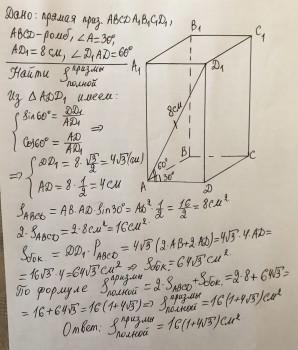 Дано: прямая приз. ABCDA₁B₁C₁D₁,
ABCD-ромб, ∠A=30°,
AD₁=8см, ∠D₁AD=60°
Найти Sпризмы полной
Из △ADD₁ имеем:
{ sin60°= DD₁/AD₁
{ cos60°= AD/AD₁ ⇒
⇒ { DD₁=8·√3/2=4√3(см)
{ AD=8·1/2=4см
SABCD=AB·AD·sin30°=AD²·1/2=16/2=8см²
2·SABCD=2·8см²=16см².
Sбок.=DD₁·PABCD=4√3(2AB+2AD)=4√3·4AD=
=16√3·4=64√3см² ⇒ Sбок=64√3см².
По формуле Sпризмы полной=2·SABCD+Sбок=2·8+64√3=
=16+64√3=16(1+4√3) ⇒ Sпризмы полной=16(1+4√3)см²
Ответ: Sпризмы полной=16(1+4√3)см²
B₁
C₁
A₁
D₁
8см
B
C
60°
30°
A
D